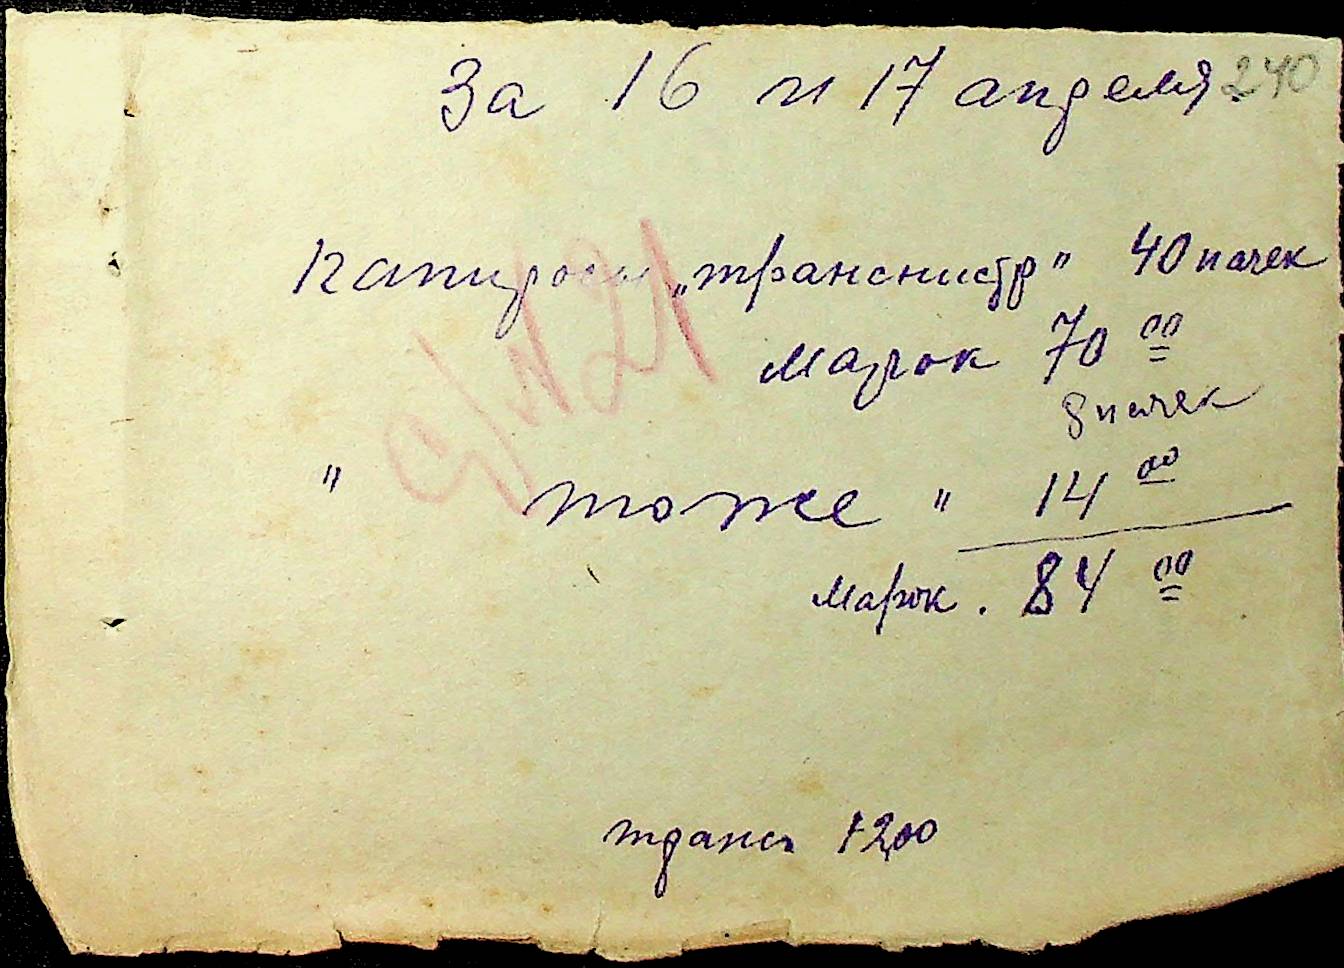 За 16 и 17 апреля 240
Папиросы „транснистр" 40 пачек
марок 70 00
8 пачек
" тоже " 14 00
марок. 84 00
транс 1200